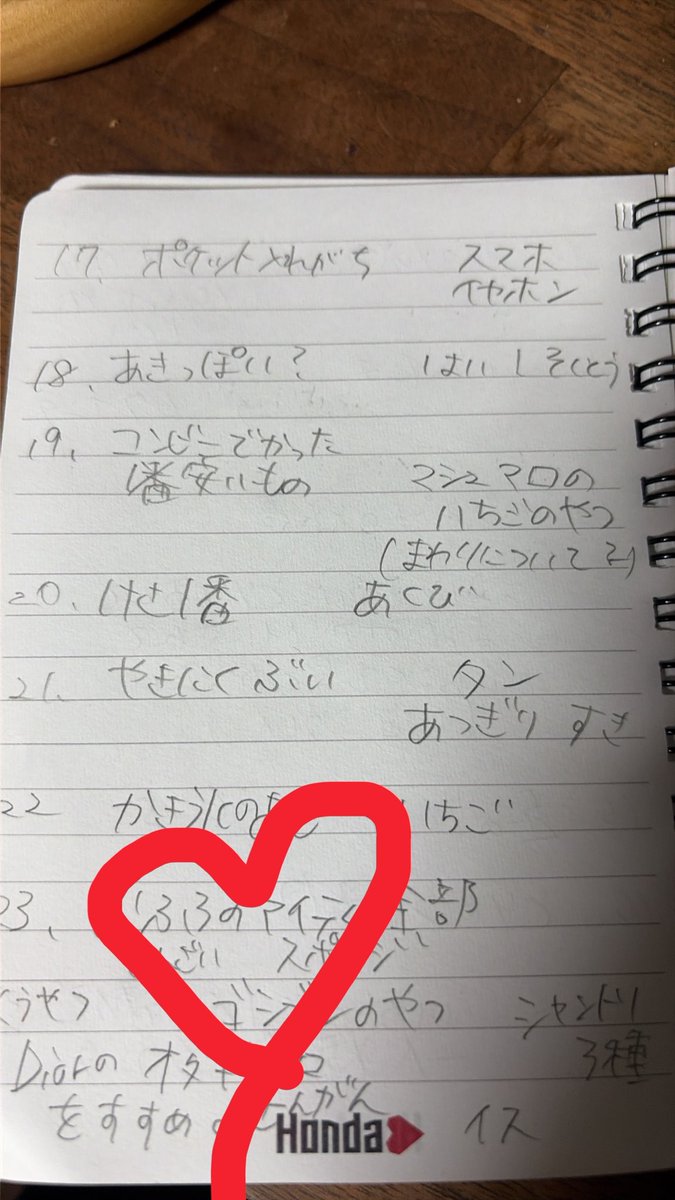 17. ポケット入れがち スマホ
イヤホン
18. あきっぽい? はい しそくとう
19. コンビニでかった
1番安いもの マシュマロの
いちごのやつ
(まわりについてる)
20. けさ1番 あくび
21. やきにくぶい タン
あつぎり すき
22 かき氷の いちご
23. ふろのアイテム 部
スポンジ
うやつ ゴシゴシのやつ シャンドリ
Diorの 3種
をすすめ イス
Honda